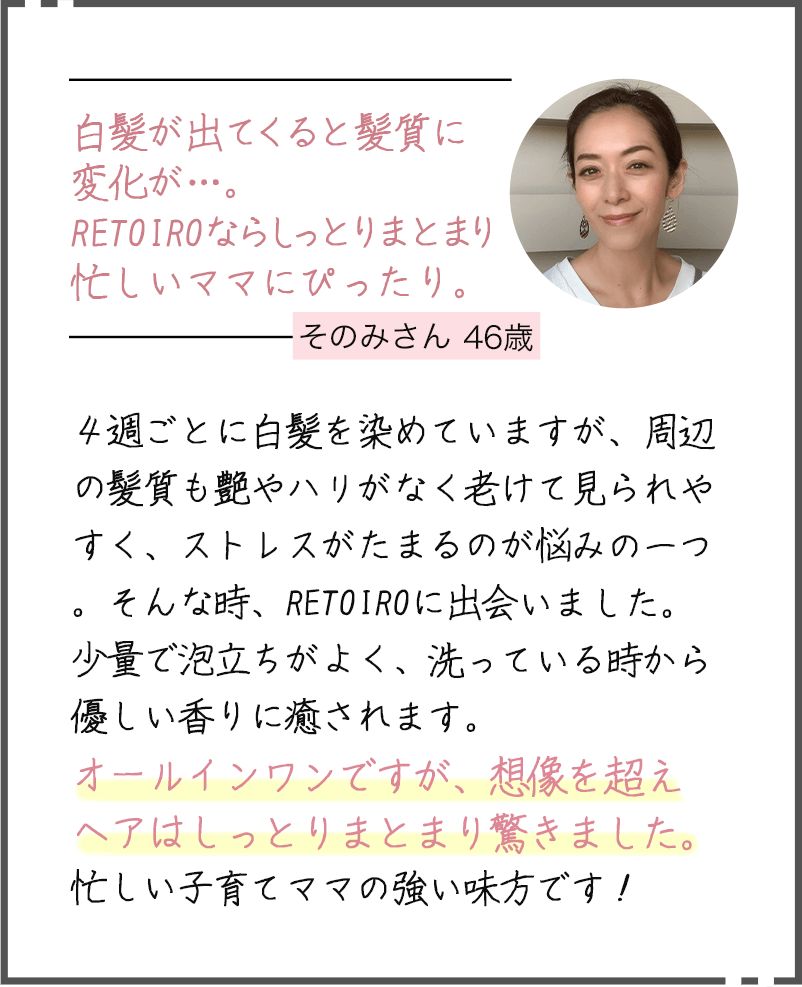 白髪が出てくると髪質に
変化が…。
RETOIROならしっとりまとまり
忙しいママにぴったり。
そのみさん 46歳
4週ごとに白髪を染めていますが、周辺
の髪質も艶やハリがなく老けて見られや
すく、ストレスがたまるのが悩みの一つ
。そんな時、RETOIROに出会いました。
少量で泡立ちがよく、洗っている時から
優しい香りに癒されます。
オールインワンですが、想像を超え
ヘアはしっとりまとまり驚きました。
忙しい子育てママの強い味方です！